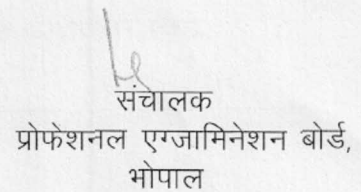 संचालक
प्रोफेशनल एग्जामिनेशन बोर्ड,
भोपाल